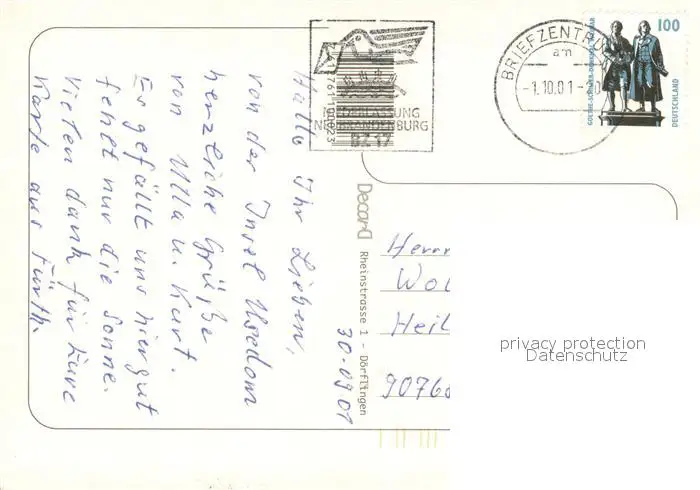 30.09.01
Hallo Ihr Lieben,
von der Insel Usedom
herzliche Grüße
von Ulla u. Kurt.
Es gefällt uns hier gut
fehlt nur die Sonne.
Vielen dank für Eure
Karte aus Fürth.
Decard
Rheinstrasse 1 - Dörflingen
NIEDERLASSUNG
NEUBRANDENBURG
BRIEFZENTRU
am
-1.10.01-20
100
DEUTSCHLAND
GOETHE-SCHILLER-DENKMAL WEIMAR
Herrn
Wol
Heil
90766
privacy protection
Datenschutz